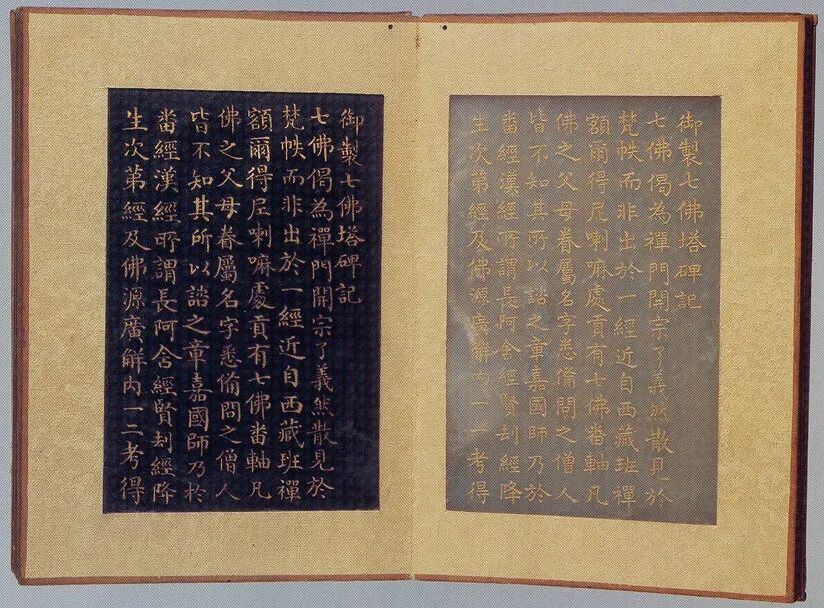 御製七佛塔碑記
七佛偈為禪門開宗了義然散見於
梵帙而非出於一經近自西藏班禪
額爾得尼喇嘛處貢有七佛畨軸凡
佛之父母眷屬名字悉備問之僧人
皆不知其所以諮之章嘉國師乃於
畨經漢經所謂長阿含經賢刦經降
生次第經及佛源廣解內一二考得
御製七佛塔碑記
七佛偈為禪門開宗了義然散見於
梵帙而非出於一經近自西藏班禪
額爾得尼喇嘛處貢有七佛畨軸凡
佛之父母眷屬名字悉備問之僧人
皆不知其所以諮之章嘉國師乃於
畨經漢經所謂長阿含經賢刦經降
生次第經及佛源廣解內一二考得